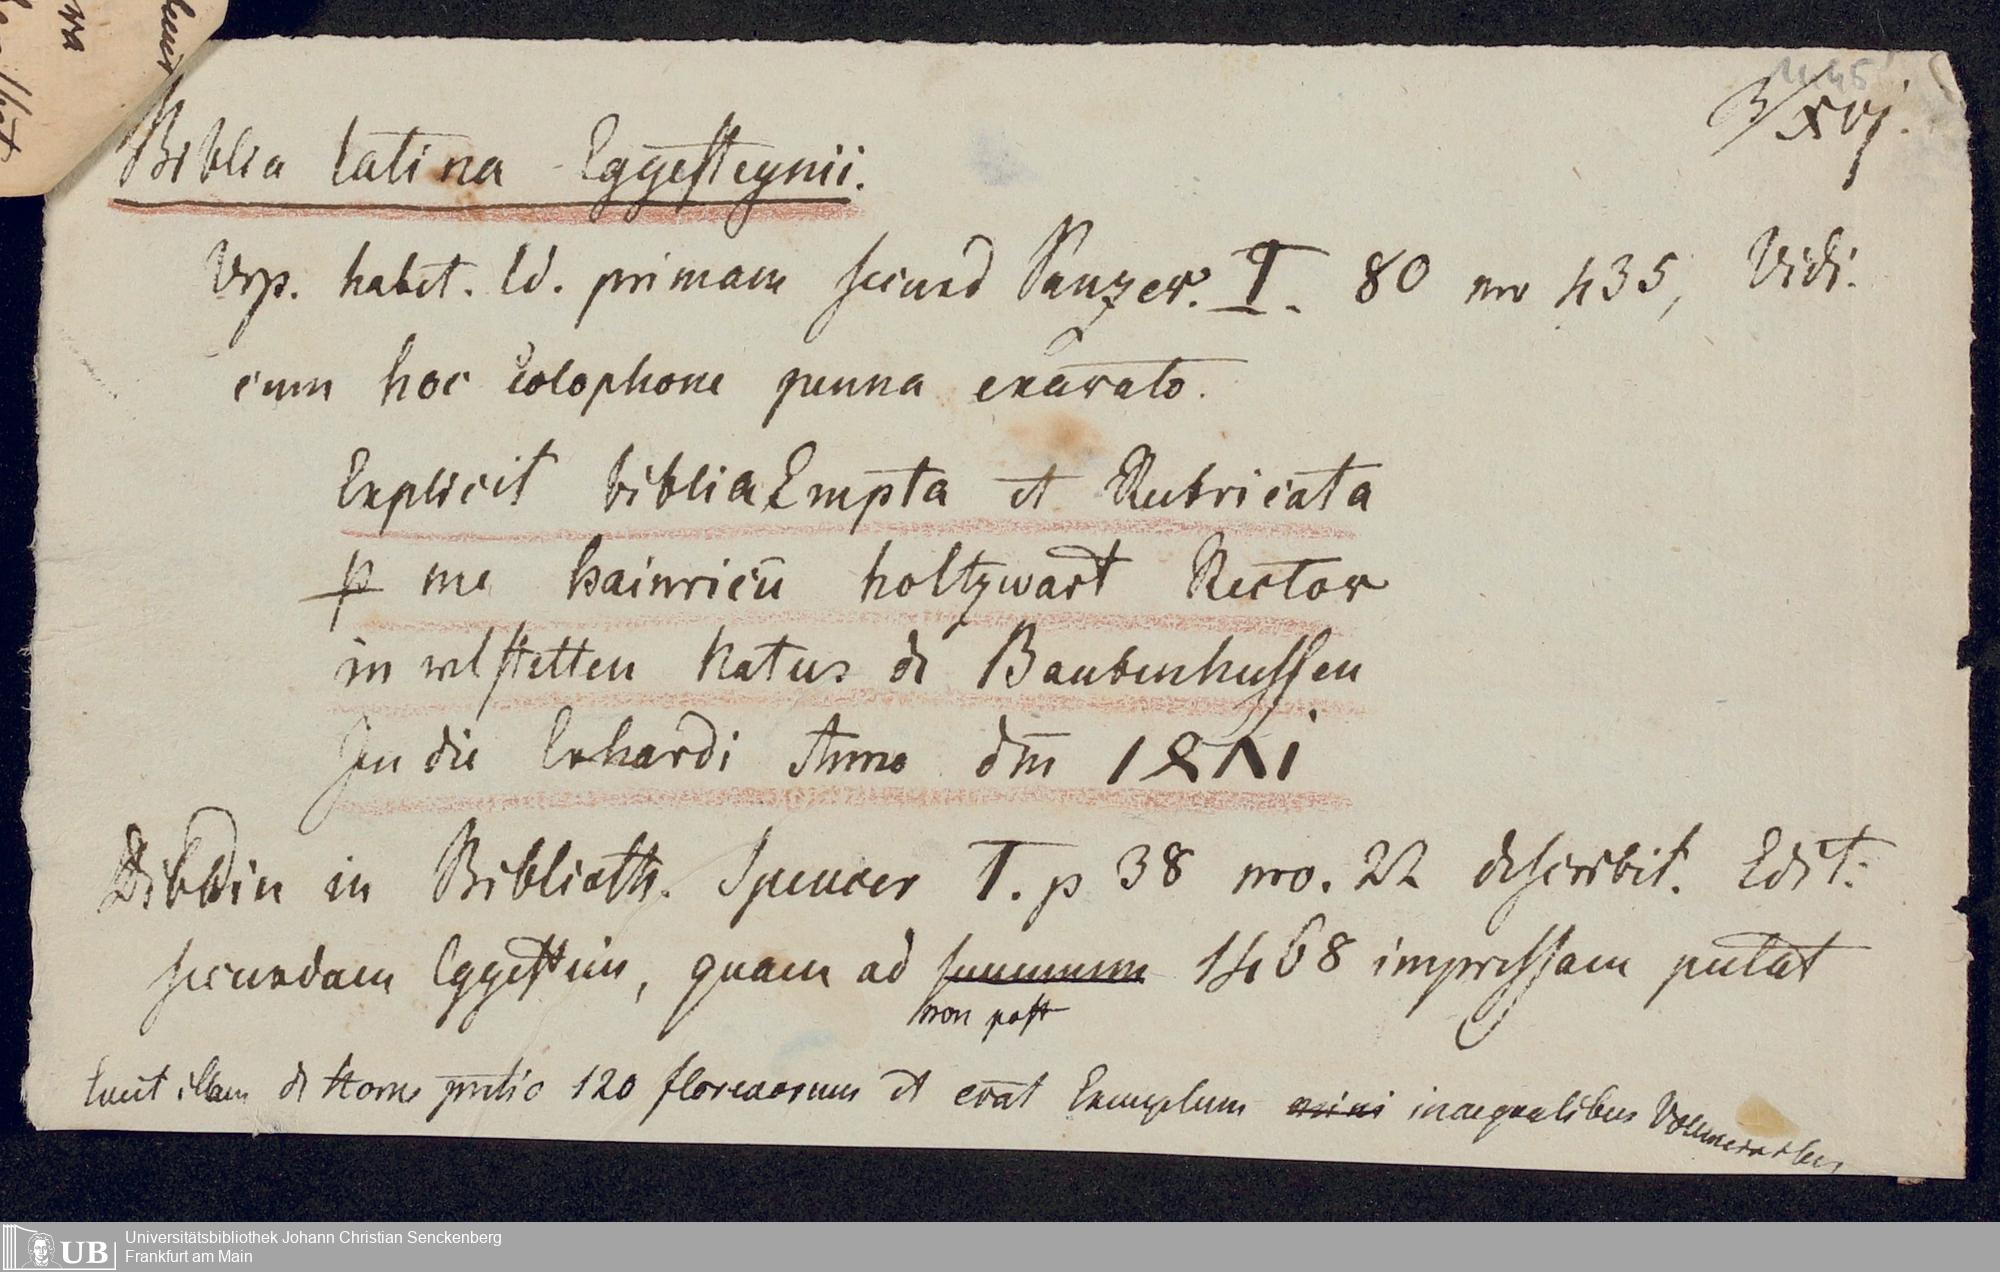 3/xvj.
Biblia latina Eggesteynii.
Vrp. habet. Ed. primam secund Panzer. I. 80 nro 435, Vidi.
cum hoc Colophone penna exarato.
Explicit biblia Empta et Rubricata
p me hainricū holtzwart Rector
in welstetten Natus de Baubenhussen
In die Erhardi Anno dm̄ 1871
Dibdin in Biblioth. Spencer T. p 38 nro. 22 describit. Edit:
secundam Eggestein, quam ad summum 1468 impressam putat
non post
Emit illam de Horne pretio 120 florenorum et erat Exemplum inaequalibus Voluminibus
UB
Universitätsbibliothek Johann Christian Senckenberg
Frankfurt am Main